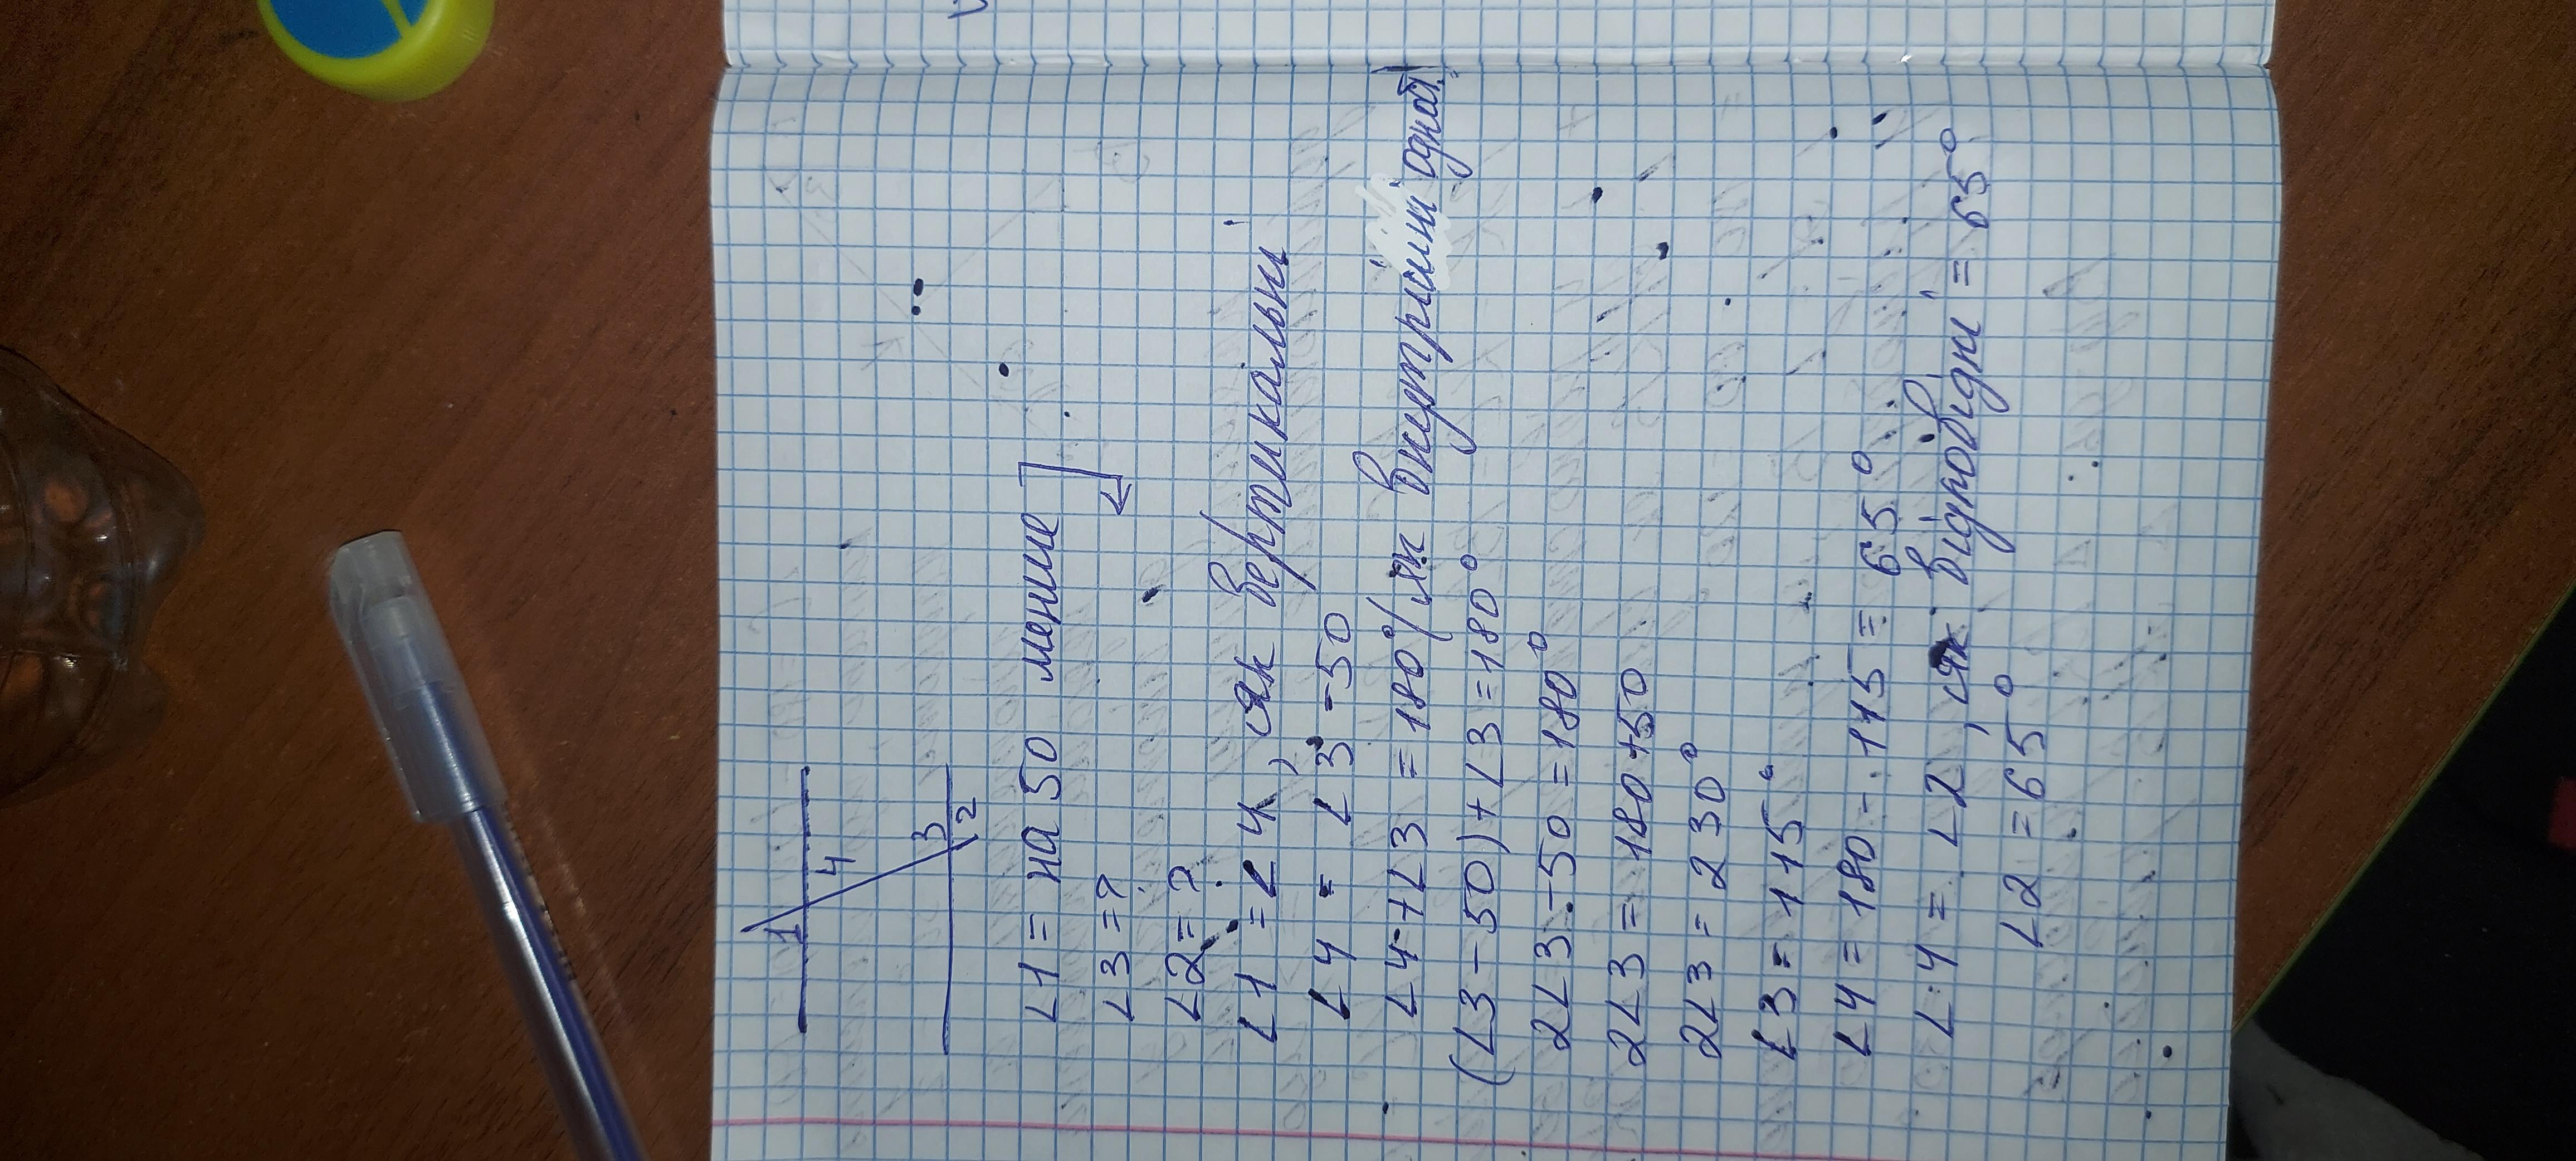 1
4
3
2
∠1 = на 50 менше
∠3 = ?
∠2 = ?
∠1 = ∠4, як вертикальні
∠4 = ∠3 - 50
∠4 + ∠3 = 180° (як внутрішні одноб.)
(∠3 - 50) + ∠3 = 180°
2∠3 - 50 = 180°
2∠3 = 180 + 50
2∠3 = 230°
∠3 = 115°
∠4 = 180 - 115 = 65°
∠4 = ∠2, як відповідні = 65°
∠2 = 65°